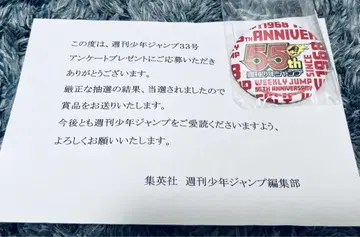 この度は、週刊少年ジャンプ33号
アンケートプレゼントにご応募いただき
ありがとうございます。
厳正な抽選の結果、当選されましたので
賞品をお送りいたします。
今後とも週刊少年ジャンプをご愛読くださいますよう、
よろしくお願いいたします。
集英社　週刊少年ジャンプ編集部
SINCE 1968
ANNIVER
55th
週刊少年ジャンプ
WEEKLY JUMP
55TH ANNIVERSARY